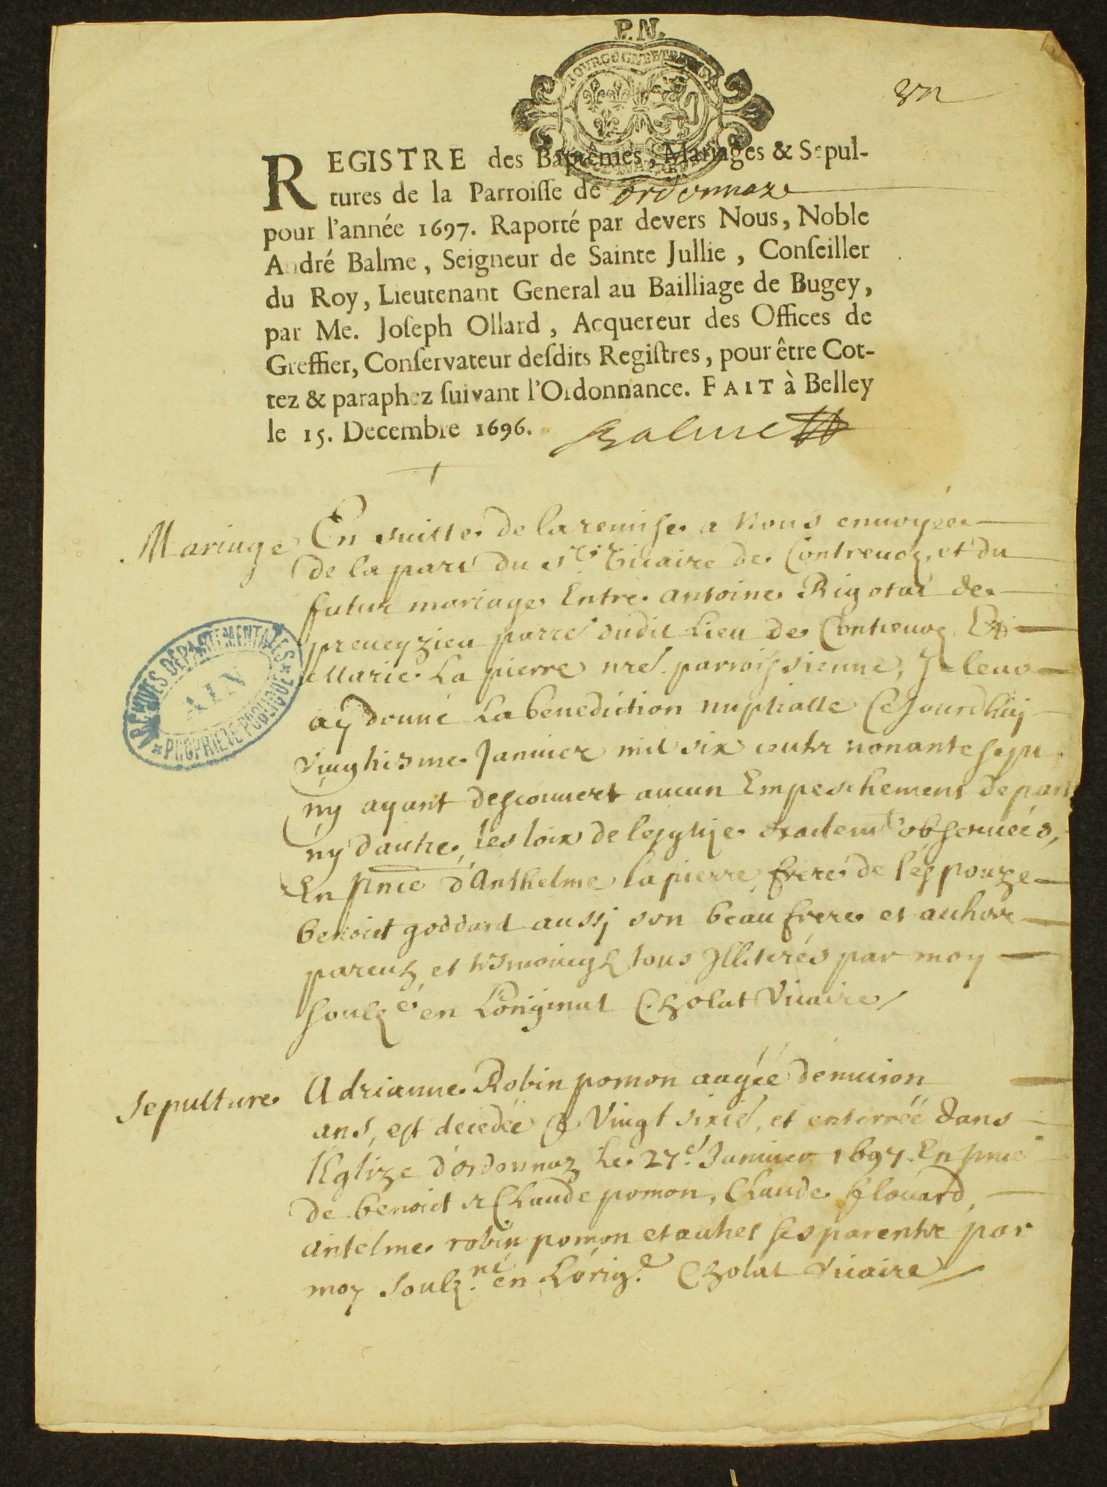 P.N.
BOURGOGNE ET BRESSE
un
REGISTRE des Baptêmes, Mariages & Sepul-
tures de la Parroisse de ordonnaz
pour l'année 1697. Raporté par devers Nous, Noble
André Balme, Seigneur de Sainte Jullie, Conseiller
du Roy, Lieutenant General au Bailliage de Bugey,
par Me. Joseph Ollard, Acquereur des Offices de
Greffier, Conservateur desdits Registres, pour être Cot-
tez & paraphez suivant l'Ordonnance. FAIT à Belley
le 15. Decembre 1696. Balme
Mariage En suitte de la remise a nous envoyée
de la part du Sr. Vicaire de Contrevoz, et du
futur mariage Entre antoine Rigotat de
preveyzieu parre dudit Lieu de Contrevoz Et
Marie La pierre nre parroissienne, Je leur
ay donné La benediction nuptialle Cejourdhuy
Vingtiesme Janvier mil six cents nonante sept
n'y ayant descouvert aucun Empeschement de part
ny d'autre, les loix de l'esglise exactemt observées,
En pnce d'Anthelme la pierre frere de l'espouze
benoit goddard aussi son beau frere et autres
parents et tesmoings tous Illiterés par moy
soulz. en L'original Cholat Vicaire
ARCHIVES DÉPARTEMENTALES
AIN
PROPRIÉTÉ PUBLIQUE
Sepulture Adrianne Robin pomon aagée d'environ
ans, est decedée le Vingt sixie, et enterrée dans
l'Eglize d'ordonnaz Le 27e Janvier 1697. En pnce
de benoict et Claude pomon, Claude
antelme robin pomon et autres ses parents par
moy soulz.né en L'orig.e Cholat Vicaire